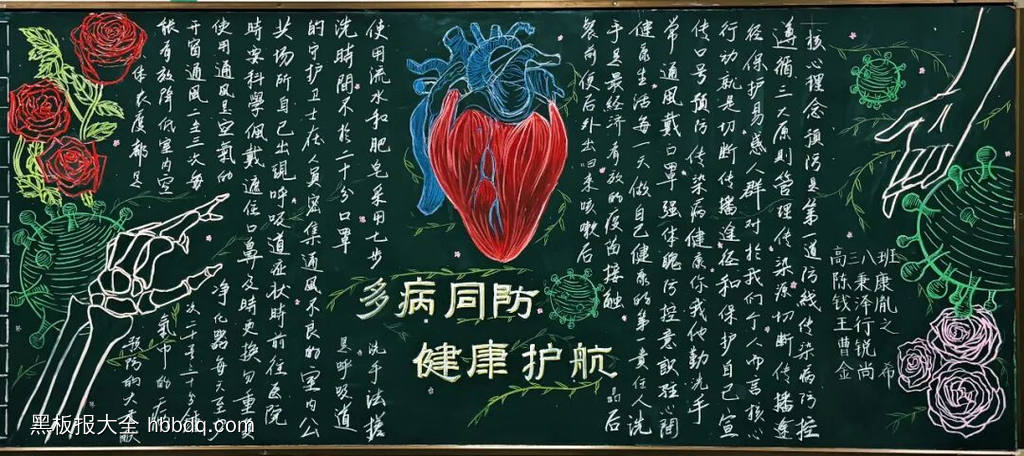 核心理念预防是第一道防线传染病防控
遵循三大原则管理传染源切断传播途
径保护易感人群对於我们个人而言核心
行动就是切断传播途径和保护自己宣
传口号预防传染病健康你我他勤洗手
常通風戴口罩强体魄防控意識驻心間
健康生活每一天做自己健康的第一责任人洗
手是最经济有效的疫苗接触
餐前便后外出回来咳嗽后
的后
多病同防
健康护航
使用流水和肥皂采用七步洗手法搓
洗時間不於二十分口罩是呼吸道
的守护卫士在人员密集通風不良的室内公
共场所自己出現呼吸道症状時前往医院
時安科學佩戴遮住口鼻及時更换勿重复
使用通風是空氣的净化器每天至
开窗通風一至三次每次二十至三十分鐘
能有效降低室内空氣中的病
体浓度都是预防的大贡献
三八班
高秉康
陈泽胤
钱行之
王锐
曹尚布
金
黑板报大全 hbbdq.com